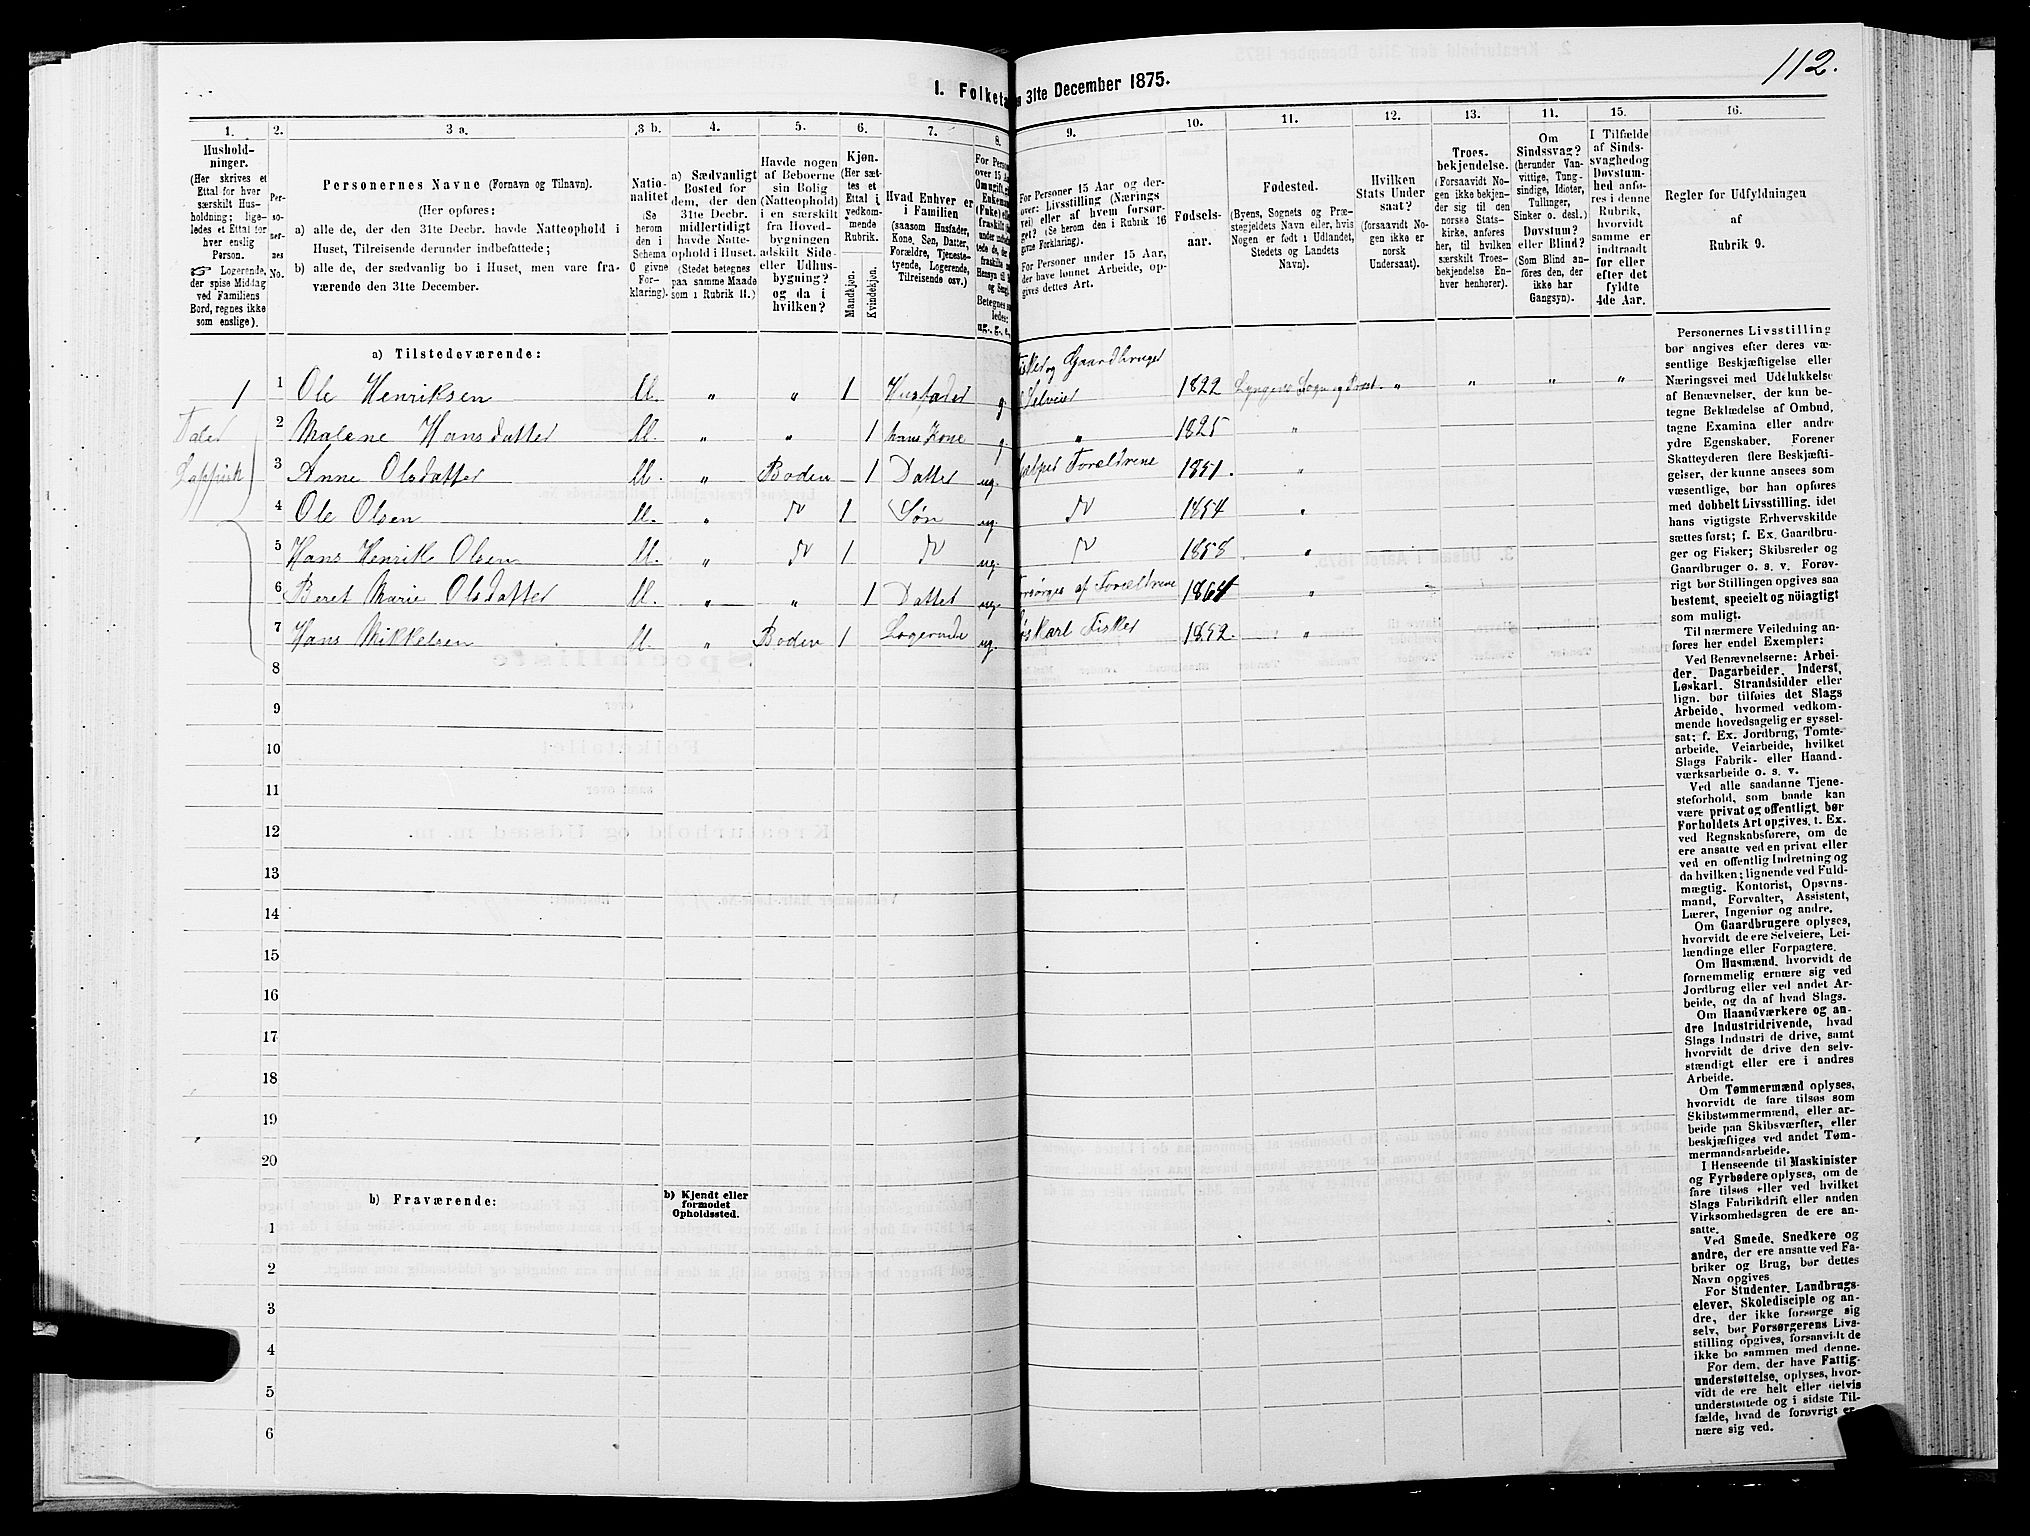 112.
1. Folketa
n 31te December 1875.
1.
2.
3 a.
3 b.
4.
5.
6.
7.
8.
9.
10.
11.
12.
13.
14.
15.
16.
Hushold-
ninger.
(Her skrives et
Ettal for hver
særskilt Hus-
holdning; lige-
ledes et Ettal for
hver enslig
Person.
☞ Logerende,
der spise Middag
ved Familiens
Bord, regnes ikke
som enslige).
Per-
so-
ner-
nes
No.
Personernes Navne (Fornavn og Tilnavn).
(Her opføres:
a) alle de, der den 31te Decbr. havde Natteophold i
Huset, Tilreisende derunder indbefattede;
b) alle de, der sædvanlig bo i Huset, men vare fra-
værende den 31te December.
Natio-
nalitet
(Se
herom
den i
Schema
C givne
For-
klaring).
a) Sædvanligt
Bosted for
dem, der den
31te Decbr.
midlertidigt
havde Natte-
ophold i Huset.
(Stedet betegnes
paa samme Maade
som i Rubrik 11.)
Havde nogen
af Beboerne
sin Bolig
(Natteophold)
i en særskilt
fra Hoved-
bygningen
adskilt Side-
eller Udhus-
bygning?
og da i
hvilken?
Kjøn.
(Her sæt-
tes et
Ettal i
vedkom-
mende
Rubrik.
Mandkjøn.
Kvindekjøn.
Hvad Enhver er
i Familien
(saasom Husfader,
Kone, Søn, Datter,
Forældre, Tjeneste-
tyende, Logerende,
Tilreisende osv.)
For Personer 15 Aar og der-
over: Livsstilling (Nærings
vei) eller af hvem forsør-
get? (Se herom den i Rubrik 16
givne Forklaring).
For Personer under 15 Aar,
der have lønnet Arbeide, op-
gives dettes Art.
Fødsels-
aar.
Fødested.
(Byens, Sognets og Præ-
stegjeldets Navn eller, hvis
Nogen er født i Udlandet,
Stedets og Landets
Navn).
Hvilken
Stats Under
saat?
(forsaavidt No-
gen ikke er
norsk
Undersaat).
Troes-
bekjendelse.
(Forsaavidt No-
gen ikke bekjen-
der sig til den
norske Stats-
kirke, anføres
her, til hvilken
særskilt Troes-
bekjendelse En-
hver henhører).
Om
Sindssvag?
(herunder Van-
vittige, Tung-
sindige, Idioter,
Tullinger,
Sinker o. desl.)
Døvstum?
eller Blind?
(Som Blind an-
føres den, der
ikke har
Gangsyn).
I Tilfælde
af Sinds-
svaghed og
Døvstum-
hed anfø-
res i denne
Rubrik,
hvorvidt
samme er
indtraadt
før eller
efter det
fyldte
4de Aar.
Regler for Udfyldningen
af
Rubrik 9.
a) Tilstedeværende:
1 1 Ole Henriksen M. " " 1 Husfader g. Fisker og Gaardbruger Selveier 1822 Lyngens Sogn og Præst. " " " "
Taler 2 Malene Hansdatter M. " " 1 hans Kone g. " 1825 "
Lappisk 3 Anne Olsdatter M. " Boden 1 Datter ug. hjælper Forældrene 1851. "
4 Ole Olsen M. " " 1 Søn ug. " 1854 "
5 Hans Henrik Olsen M. " " 1 " ug. " 1858 "
6 Beret Marie Olsdatter M. " " 1 Datter ug. forsørges af Forældrene 1864 "
7 Hans Mikkelsen M. " Boden 1 Logerende ug. Løskarl Fisker 1852. "
8
9
10
11
12
13
14
15
16
17
18
19
20
b) Fraværende:
b) Kjendt eller
formodet
Opholdssted.
1
2
3
4
5
6
Personernes Livsstilling
bør angives efter deres væ-
sentlige Beskjæftigelse eller
Næringsvei med Udelukkelse
af Benævnelser, der kun be-
tegne Beklædelse af Ombud,
tagne Examina eller andre
ydre Egenskaber. Forener
Skatteyderen flere Beskjæfti-
gelser, der kunne ansees som
væsentlige, bør han opføres
med dobbelt Livsstilling, idet
hans vigtigste Erhvervskilde
sættes først; f. Ex. Gaardbru-
ger og Fisker; Skibsreder og
Gaardbruger o. s. v. Forøv-
rigt bør Stillingen opgives saa
bestemt, specielt og nöiagtigt
som muligt.
Til nærmere Veiledning an-
føres her endel Exempler:
Ved Benævnelserne: Arbei-
der, Dagarbeider, Inderst,
Løskarl, Strandsidder eller
lign. bør tilføies det Slags
Arbeide, hvormed vedkom-
mende hovedsagelig er syssel-
sat; f. Ex. Jordbrug, Tomte-
arbeide, Veiarbeide, hvilket
Slags Fabrik- eller Haand-
værksarbeide o. s. v.
Ved alle saadanne Tjene-
steforhold, som baade kan
være privat og offentligt, bør
Forholdets Art opgives, t. Ex.
ved Regnskabsførere, om de
ere ansatte ved en privat eller
ved en offentlig Indretning og
da hvilken; lignende ved Fuld-
mægtig, Kontorist, Opsyns-
mand, Forvalter, Assistent,
Lærer, Ingeniør og andre.
Om Gaardbrugere oplyses,
hvorvidt de ere Selveiere, Lei-
lændinge eller Forpagtere.
Om Husmænd, hvorvidt de
fornemmelig ernære sig ved
Jordbrug eller ved andet Ar-
beide, og da af hvad Slags.
Om Haandværkere og an-
dre Industridrivende, hvad
Slags Industri de drive, samt
hvorvidt de drive den selv-
stændigt eller ere i andres
Arbeide.
Om Tømmermænd oplyses,
hvorvidt de fare tilsøs som
Skibstømmermænd, eller ar-
beide paa Skibsværfter, eller
beskjæftiges ved andet Tøm-
mermandsarbeide.
I Henseende til Maskinister
og Fyrbødere oplyses, om de
fare tilsøs eller ved hvilket
Slags Fabrikdrift eller anden
Virksomhedsgren de ere an-
satte.
Ved Smede, Snedkere og
andre, der ere ansatte ved Fa-
briker og Brug, bør dettes
Navn opgives
For Studenter, Landbrugs-
elever, Skoledisciple og an-
dre, der ikke forsørge sig
selv, bør Forsørgerens Livs-
stilling opgives, forsaavidt de
ikke bo sammen med denne.
For dem, der have Fattig-
understøttelse, oplyses, hvor-
vidt de ere helt eller delvis
understøttede og i sidste Til-
fælde, hvad de forøvrigt er-
nære sig ved.